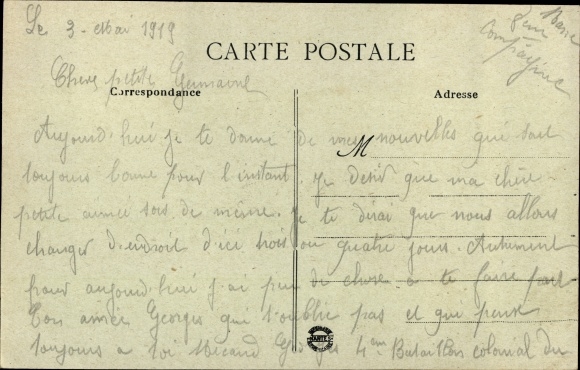 Le 3 - Mai 1919
CARTE POSTALE
Chere petite Germaine
Correspondance
Adresse
Aujourd'hui je te donne de mes nouvelles qui sont
M
toujours bonne pour l'instant. je desir que ma chère
petite amie sois de même. je te dirai que nous allons
changer d'endroit d'ici trois ou quatre jours. Autrement
pour aujourd'hui j'ai peu de chose a te faire part
Ton amie Georges qui t'oublie pas et qui pense
toujours a toi Georges 4em Bataillon colonial du